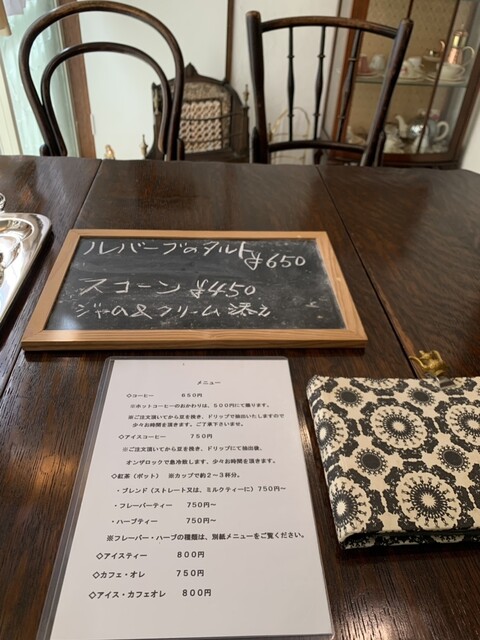 ルバーブのタルト ¥650
スコーン ¥450
ジャム&クリーム添え
メニュー
◇コーヒー 650円
※ホットコーヒーのおかわりは、500円にて賜ります。
※ご注文頂いてから豆を挽き、ドリップで抽出いたしますので
少々お時間を頂きます。ご了承下さいませ。
◇アイスコーヒー 750円
※ご注文頂いてから豆を挽き、ドリップにて抽出後、
オンザロックで急冷致します。少々お時間を頂きます。
◇紅茶（ポット） ※カップで約2～3杯分。
・ブレンド（ストレート又は、ミルクティーに）750円～
・フレーバーティー 750円～
・ハーブティー 750円～
※フレーバー・ハーブの種類は、別紙メニューをご覧ください。
◇アイスティー 800円
◇カフェ・オレ 750円
◇アイス・カフェオレ 800円